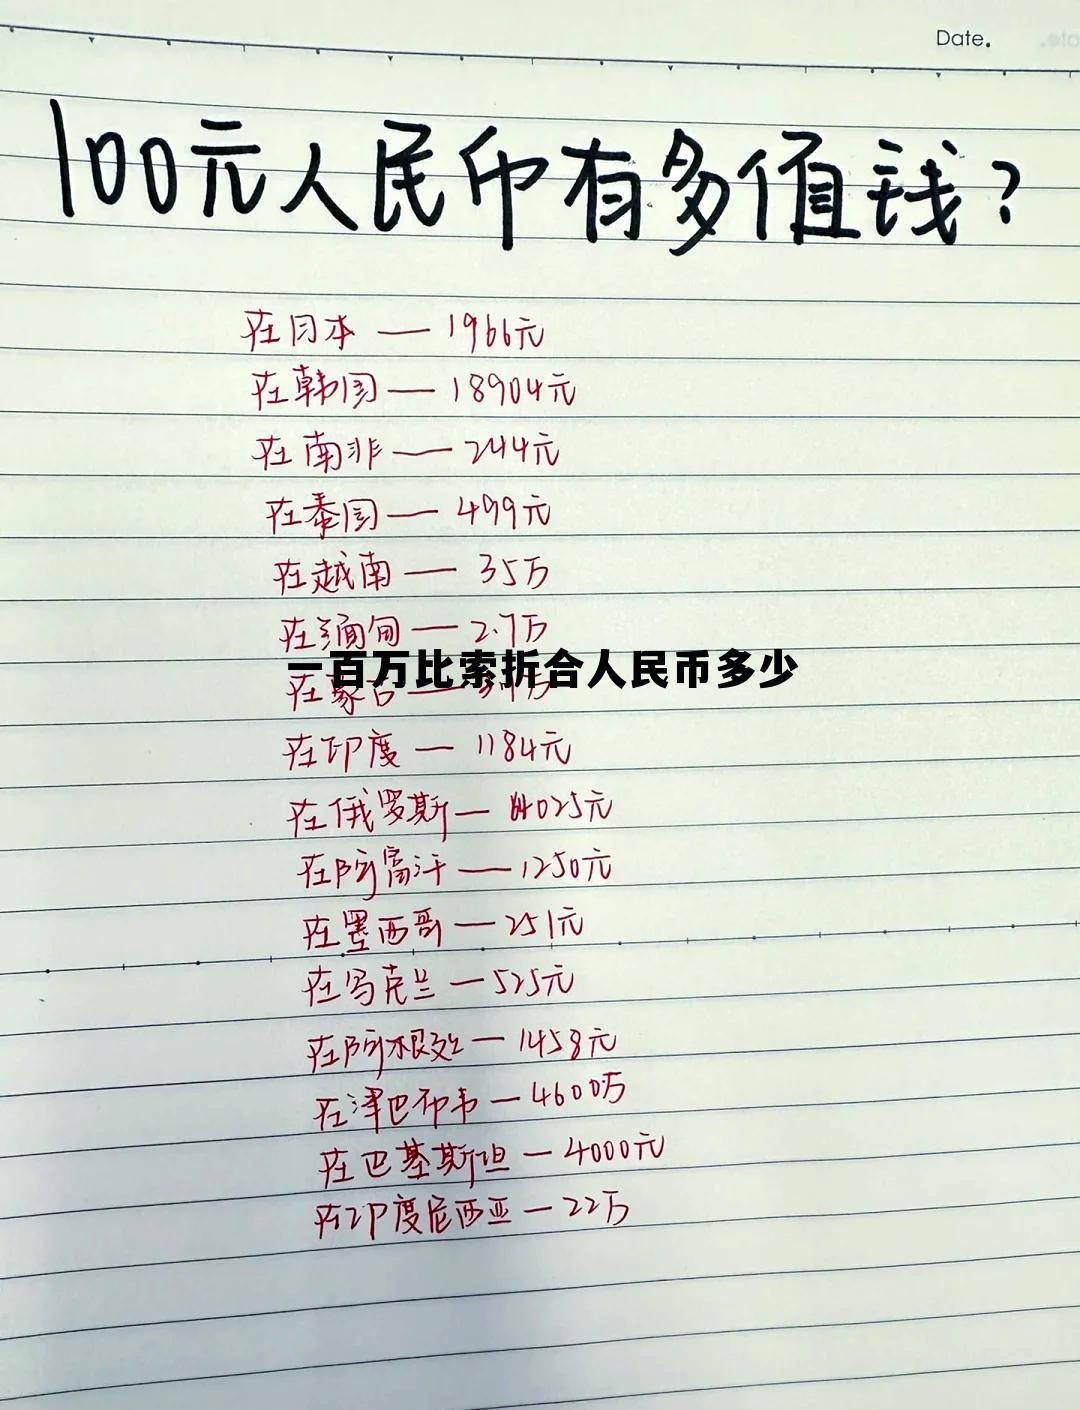 Date.
100元人民币有多值钱?
在日本 — 1966元
在韩国 — 18904元
在南非 — 244元
在泰国 — 499元
在越南 — 35万
在缅甸 — 2.7万
一百万比索折合人民币多少
在蒙古 —
在印度 — 1184元
在俄罗斯 — 1025元
在阿富汗 — 1250元
在墨西哥 — 251元
在乌克兰 — 525元
在阿根廷 — 1458元
在津巴布韦 — 4600万
在巴基斯坦 — 4000元
在印度尼西亚 — 22万